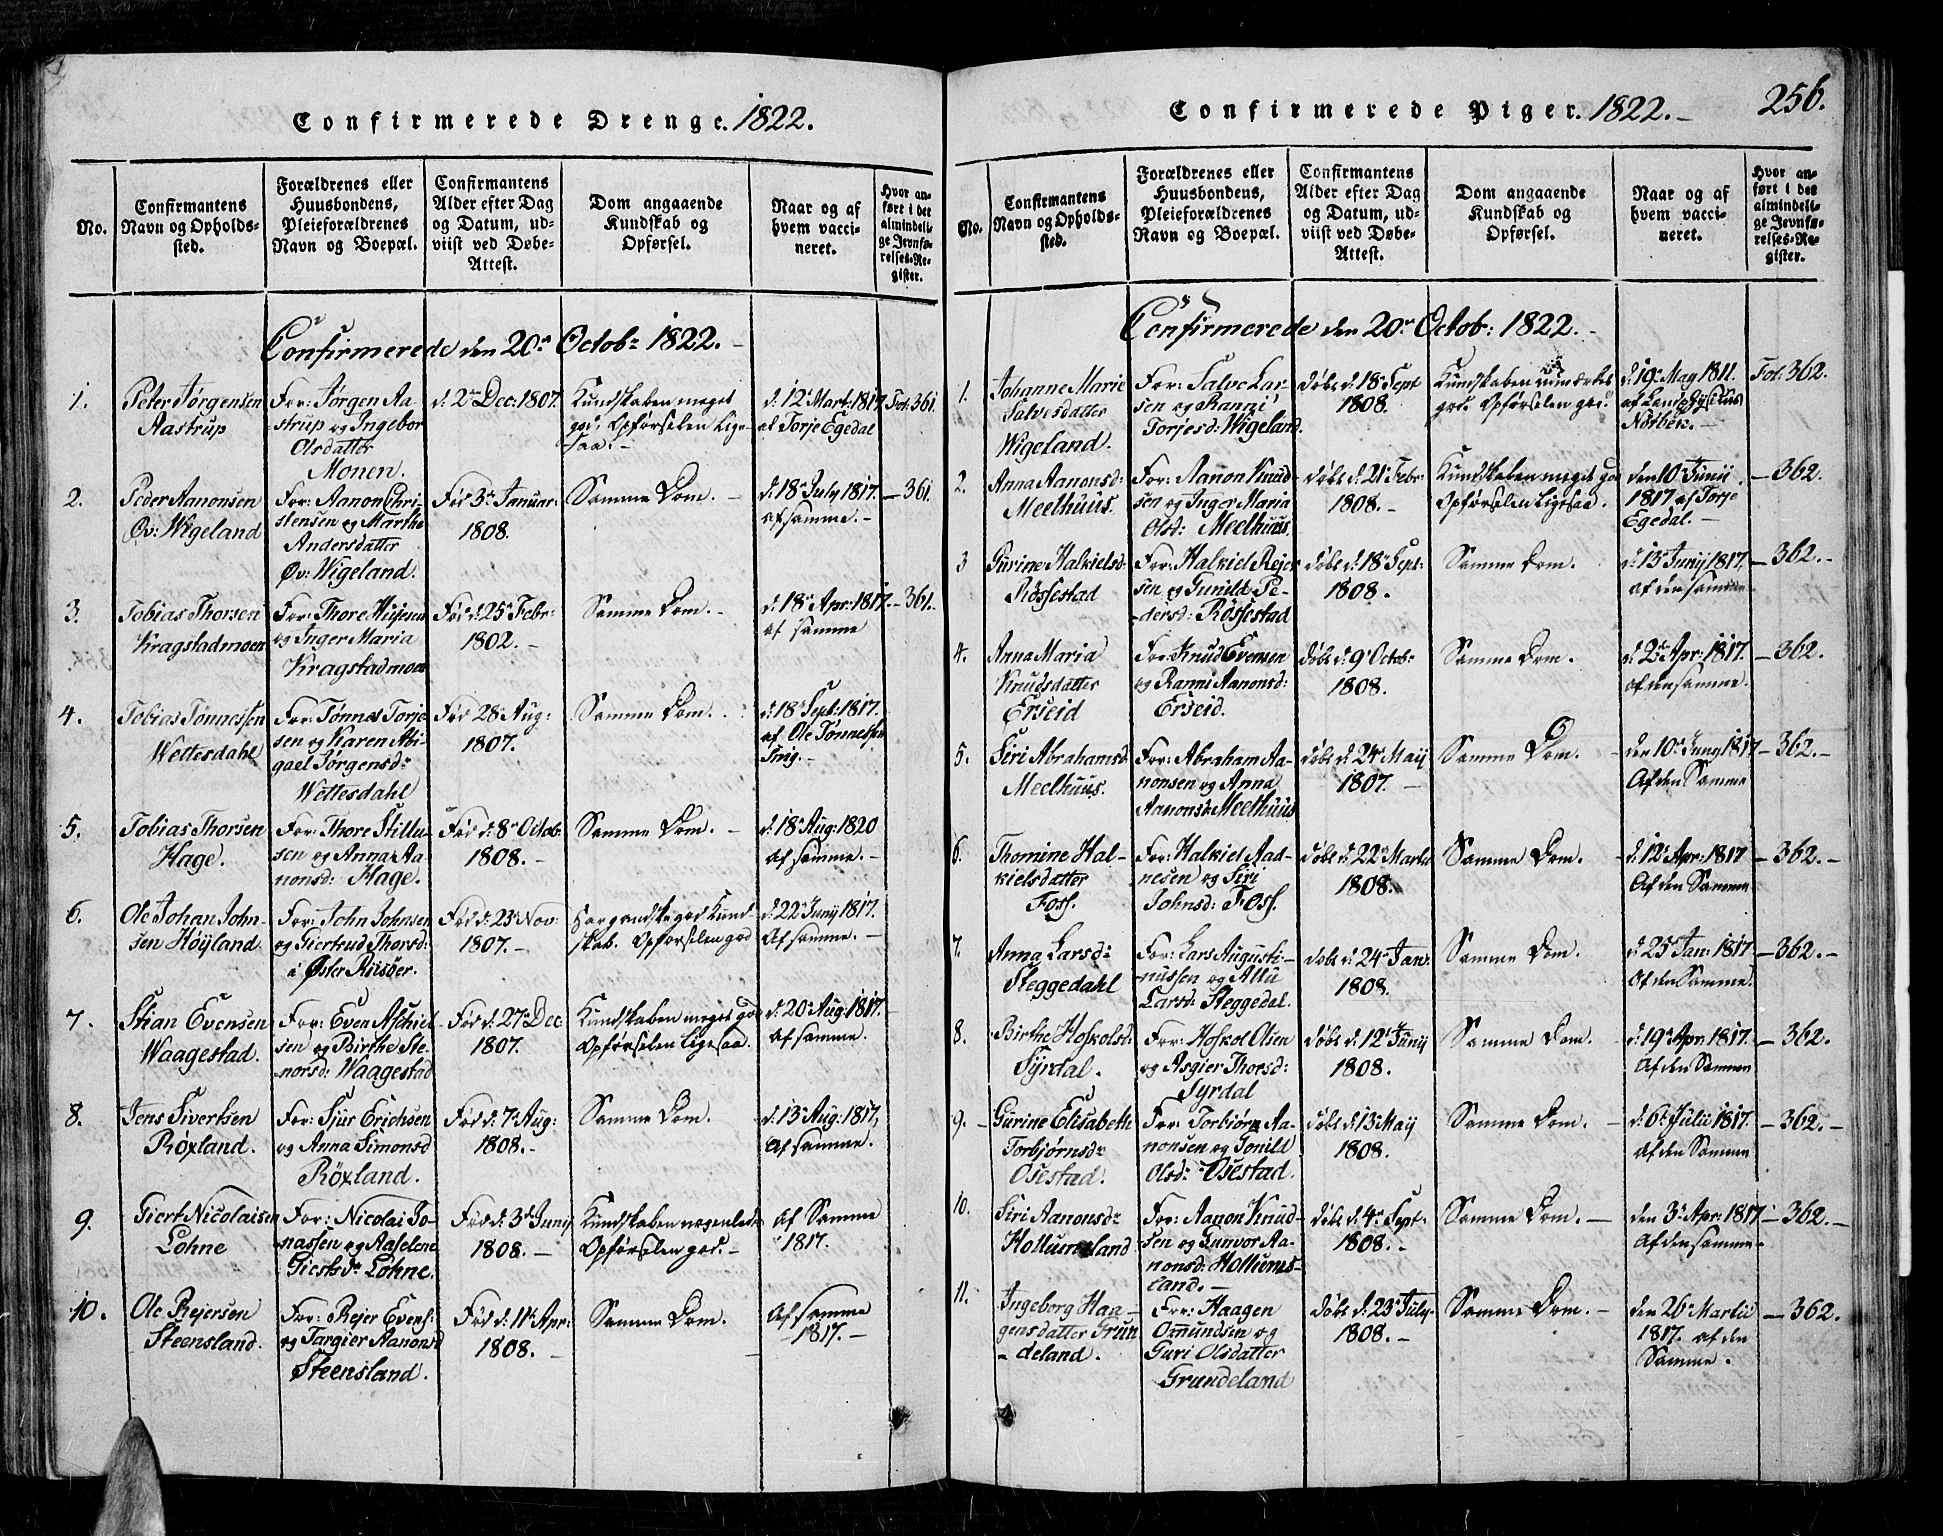 Confirmerede Drenge. 1822.
No.
Confirmantens
Navn og Opholds-
sted.
Forældrenes eller
Huusbondens,
Pleieforældrenes
Navn og Boepæl.
Confirmantens
Alder efter Dag
og Datum, ud-
viist ved Døbe-
Attest.
Dom angaaende
Kundskab og
Opførsel.
Naar og af
hvem vacci-
neret.
Hvor an-
ført i det
almindeli-
ge Jevnfø-
relses-Re-
gister.
Confirmerede den 20de Octobr 1822.
1.
Peter Jørgensen
Aastrup
For: Jørgen Aa-
strup og Ingebor
Olsdatter
Monen.
d. 2den Dec: 1807.
Kundskaben meget
god. Opførselen Lige-
saa.
d. 12te Mart: 1817
af Torje Egedal
Fol: 361.
2.
Peder Aanonsen
Øv: Wigeland
For: Aanon Chri-
stensen og Marthe
Andersdatter
Øv: Wigeland.
Fød 3de Januar:
1808.
Samme Dom.
d. 18de July 1817.
af samme.
361.
3.
Tobias Thorsen
Kragstadmoen
For: Thore
og Inger Maria
Kragstadmoen
Fød d. 25de Febr:
1802.
Samme Dom.
d. 18de Apr: 1817.
af samme
361.
4.
Tobias Tønnessen
Wettesdahl
For: Tønnes Torje-
sen og Karen Abi-
gael Jørgensdr
Wettesdahl
Fød 28de Aug:
1807.
Samme Dom.
d. 18de Sept: 1817.
af Ole Tønnessen
5.
Tobias Thorsen
Hage.
For: Thore Stillu-
sen og Anna Aa-
nonsd: Hage.
Fød d: 8de Octob
1808.
Samme Dom.
d: 18de Aug: 1820
af samme.
6.
Ole Johan John-
sen Höyland.
For: John Johnsen
og Giertrud Thorsd:
i Øster Riisøer.
Fød d: 23de Nov:
1807.
god Kund-
skab. Opførselen god
d: 22de Juny 1817.
Af samme.
7.
Stian Evensen
Waagestad.
For: Even Aschiel-
sen og Birthe Ste-
norsd: Waagestad
Fød d: 27de Dec
1807.
Kundskaben meget god
Opførselen Ligesaa.
d: 20de Aug: 1817.
Af samme.
8.
Jens Sivertsen
Röxland.
For: Sjur Erichsen
og Anna Simonsd
Röxland.
Fød d. 7de Aug:
1808.
Samme Dom.
d: 13de Aug: 1817,
af samme.
9.
Giert Nicolaisen
Lohne
For: Nicolai Jo-
nassen og Aaselene
Giertsdr Lohne.
Fød d: 3de Juny
1808.
Kundskaben nogenlede
Opførselen god.
Af Samme
1817.
10.
Ole Rejersen
Steensland.
For: Rejer Evens:
og Targier Aanonsd
Steensland.
Fød d: 11te Apr:
1808.
Samme Dom.
Af samme
1817.
Confirmerede Piger. 1822.
256.
No.
Confirmantens
Navn og Opholds-
sted.
Forældrenes eller
Huusbondens,
Pleieforældrenes
Navn og Boepæl.
Confirmantens
Alder efter Dag
og Datum, ud-
viist ved Døbe-
Attest.
Dom angaaende
Kundskab og
Opførsel.
Naar og af
hvem vacci-
neret.
Hvor an-
ført i det
almindeli-
ge Jevnfø-
relses-Re-
gister.
Confirmerede den 20de Octob: 1822.
1.
Johanne Marie
Salvesdatter
Wigeland.
For: Salve Lar-
sen og Ranni
Torjesd: Wigeland.
Døbt d. 18de Sept
1808.
Kundskaben
god. Opførselen god.
d. 19de May 1811.
af Landphysikus
Nörbek.
Fol: 362.
2.
Anna Aanonsd:
Meelhuus.
For: Aanon Knud-
sen og Inger Maria
Olsd: Meelhuus.
Døbt d. 21de Febr
1808.
Kundskaben meget god
Opførselen Ligesaa.
den 10de Junii
1817 af Torje
Egedal.
362.
3
Gurine Halkielsd:
Rössestad
For: Halkiel Rejer-
sen og Gunild Pe-
dersd: Rössestad
Døbt d. 18de Sept:
1808.
Samme Dom.
d. 13de Juny 1817.
af den samme
362.
4.
Anna Maria
Knudsdatter
Erseid
For: Knud Evensen
og Ranni Aanonsd:
Erseid.
Døbt d. 9de Octobr
1808.
Samme Dom.
d. 2den Apr: 1817.
af den samme.
362.
5.
Siri Abrahamsd
Meelhuus.
For: Abraham Aa-
nonsen og Anna
Aanonsd: Meelhuus.
Døbt d. 24de Maij
1807.
Samme Dom.
den 10de Juny 1817
Af den Samme
362.
6.
Thomine Hal-
kielsdatter
Foss.
For: Halkiel Aad-
nesen og Siri
Johnsd: Foss.
Døbt d. 22de Martii
1808.
Samme Dom.
d. 12te Apr: 1817
Af den Samme
362.
7.
Anna Larsd:
Steggedahl
For: Lars Augusti-
nussen og Allu
Larsd: Steggedal.
Døbt d. 24de Jan:
1808.
Samme Dom.
d. 25de Jan: 1817
Af den Samme.
362.
8.
Birthe Hoskolsd.
Syrdal.
For: Hoskol Olsen
og Asgier Thorsd:
Syrdal
Døbt d. 12te Junij
1808.
Samme Dom.
d. 19de Apr: 1817.
Af den Samme
362.
9.
Gurine Elisabeth
Torbjørnsdr
Osestad.
For: Torbjørn Aa-
nonsen og Tonild
Olsd: Osestad.
Døbt d. 13 Maij
1808.
Samme Dom.
d. 6te Julii 1817.
af den Samme
362.
10.
Siri Aanonsdr
Hollumsland
For: Aanon Knud-
sen og Gunvor Aa-
nonsd: Hollums-
land.
Døbt d. 4de Sept:
1808.
Samme Dom.
den 3de Apr: 1817
af den samme
362.
11.
Ingeborg Haa-
gensdatter Grun
deland.
For: Haagen
Omundsen og
Guri Olsdatter
Grundeland
Døbt d. 23de July
1808.
Samme Dom.
den 26de Martii
1817. af den
Samme.
362.